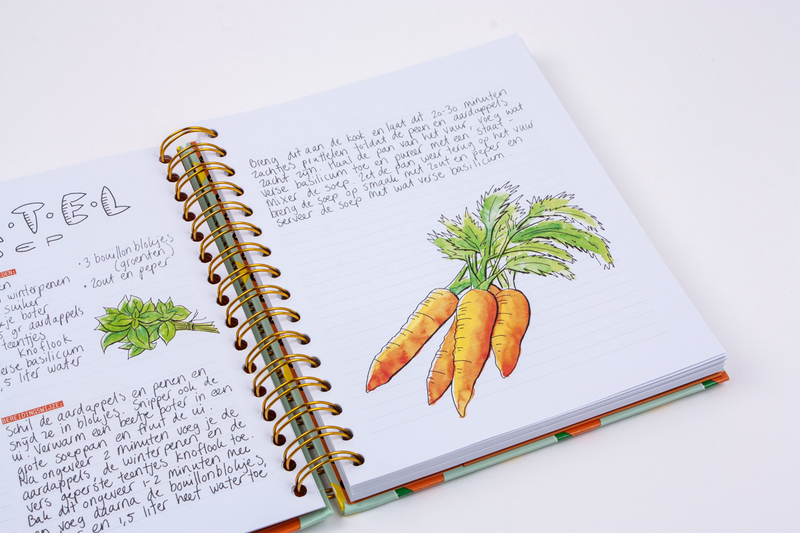 ·T·E·L
OEP
DEN:
winterpenen
suiker
kje boter
5 gr aardappels
teentjes
knoflook
rse basilicum
,5 liter water
· 3 bouillonblokjes
(groenten)
· zout en peper
BEREIDINGSWIJZE:
Schil de aardappels en penen en
snijd ze in blokjes. Snipper ook de
ui. Verwarm een beetje boter in een
grote soeppan en fruit de ui.
Na ongeveer 2 minuten voeg je de
aardappels, de winterpenen en de
vers geperste teentjes knoflook toe.
Bak dit ongeveer 1-2 minuten mee
en voeg daarna de bouillonblokjes
en 1,5 liter heet water toe.
Breng dit aan de kook en laat dit 20-30 minuten
zachtjes pruttelen totdat de peen en aardappels
zacht zijn. Haal de pan van het vuur, voeg wat
verse basilicum toe en pureer met een staaf-
mixer de soep. Zet de pan weer terug op het vuur
breng de soep op smaak met zout en peper en
serveer de soep met wat verse basilicum.